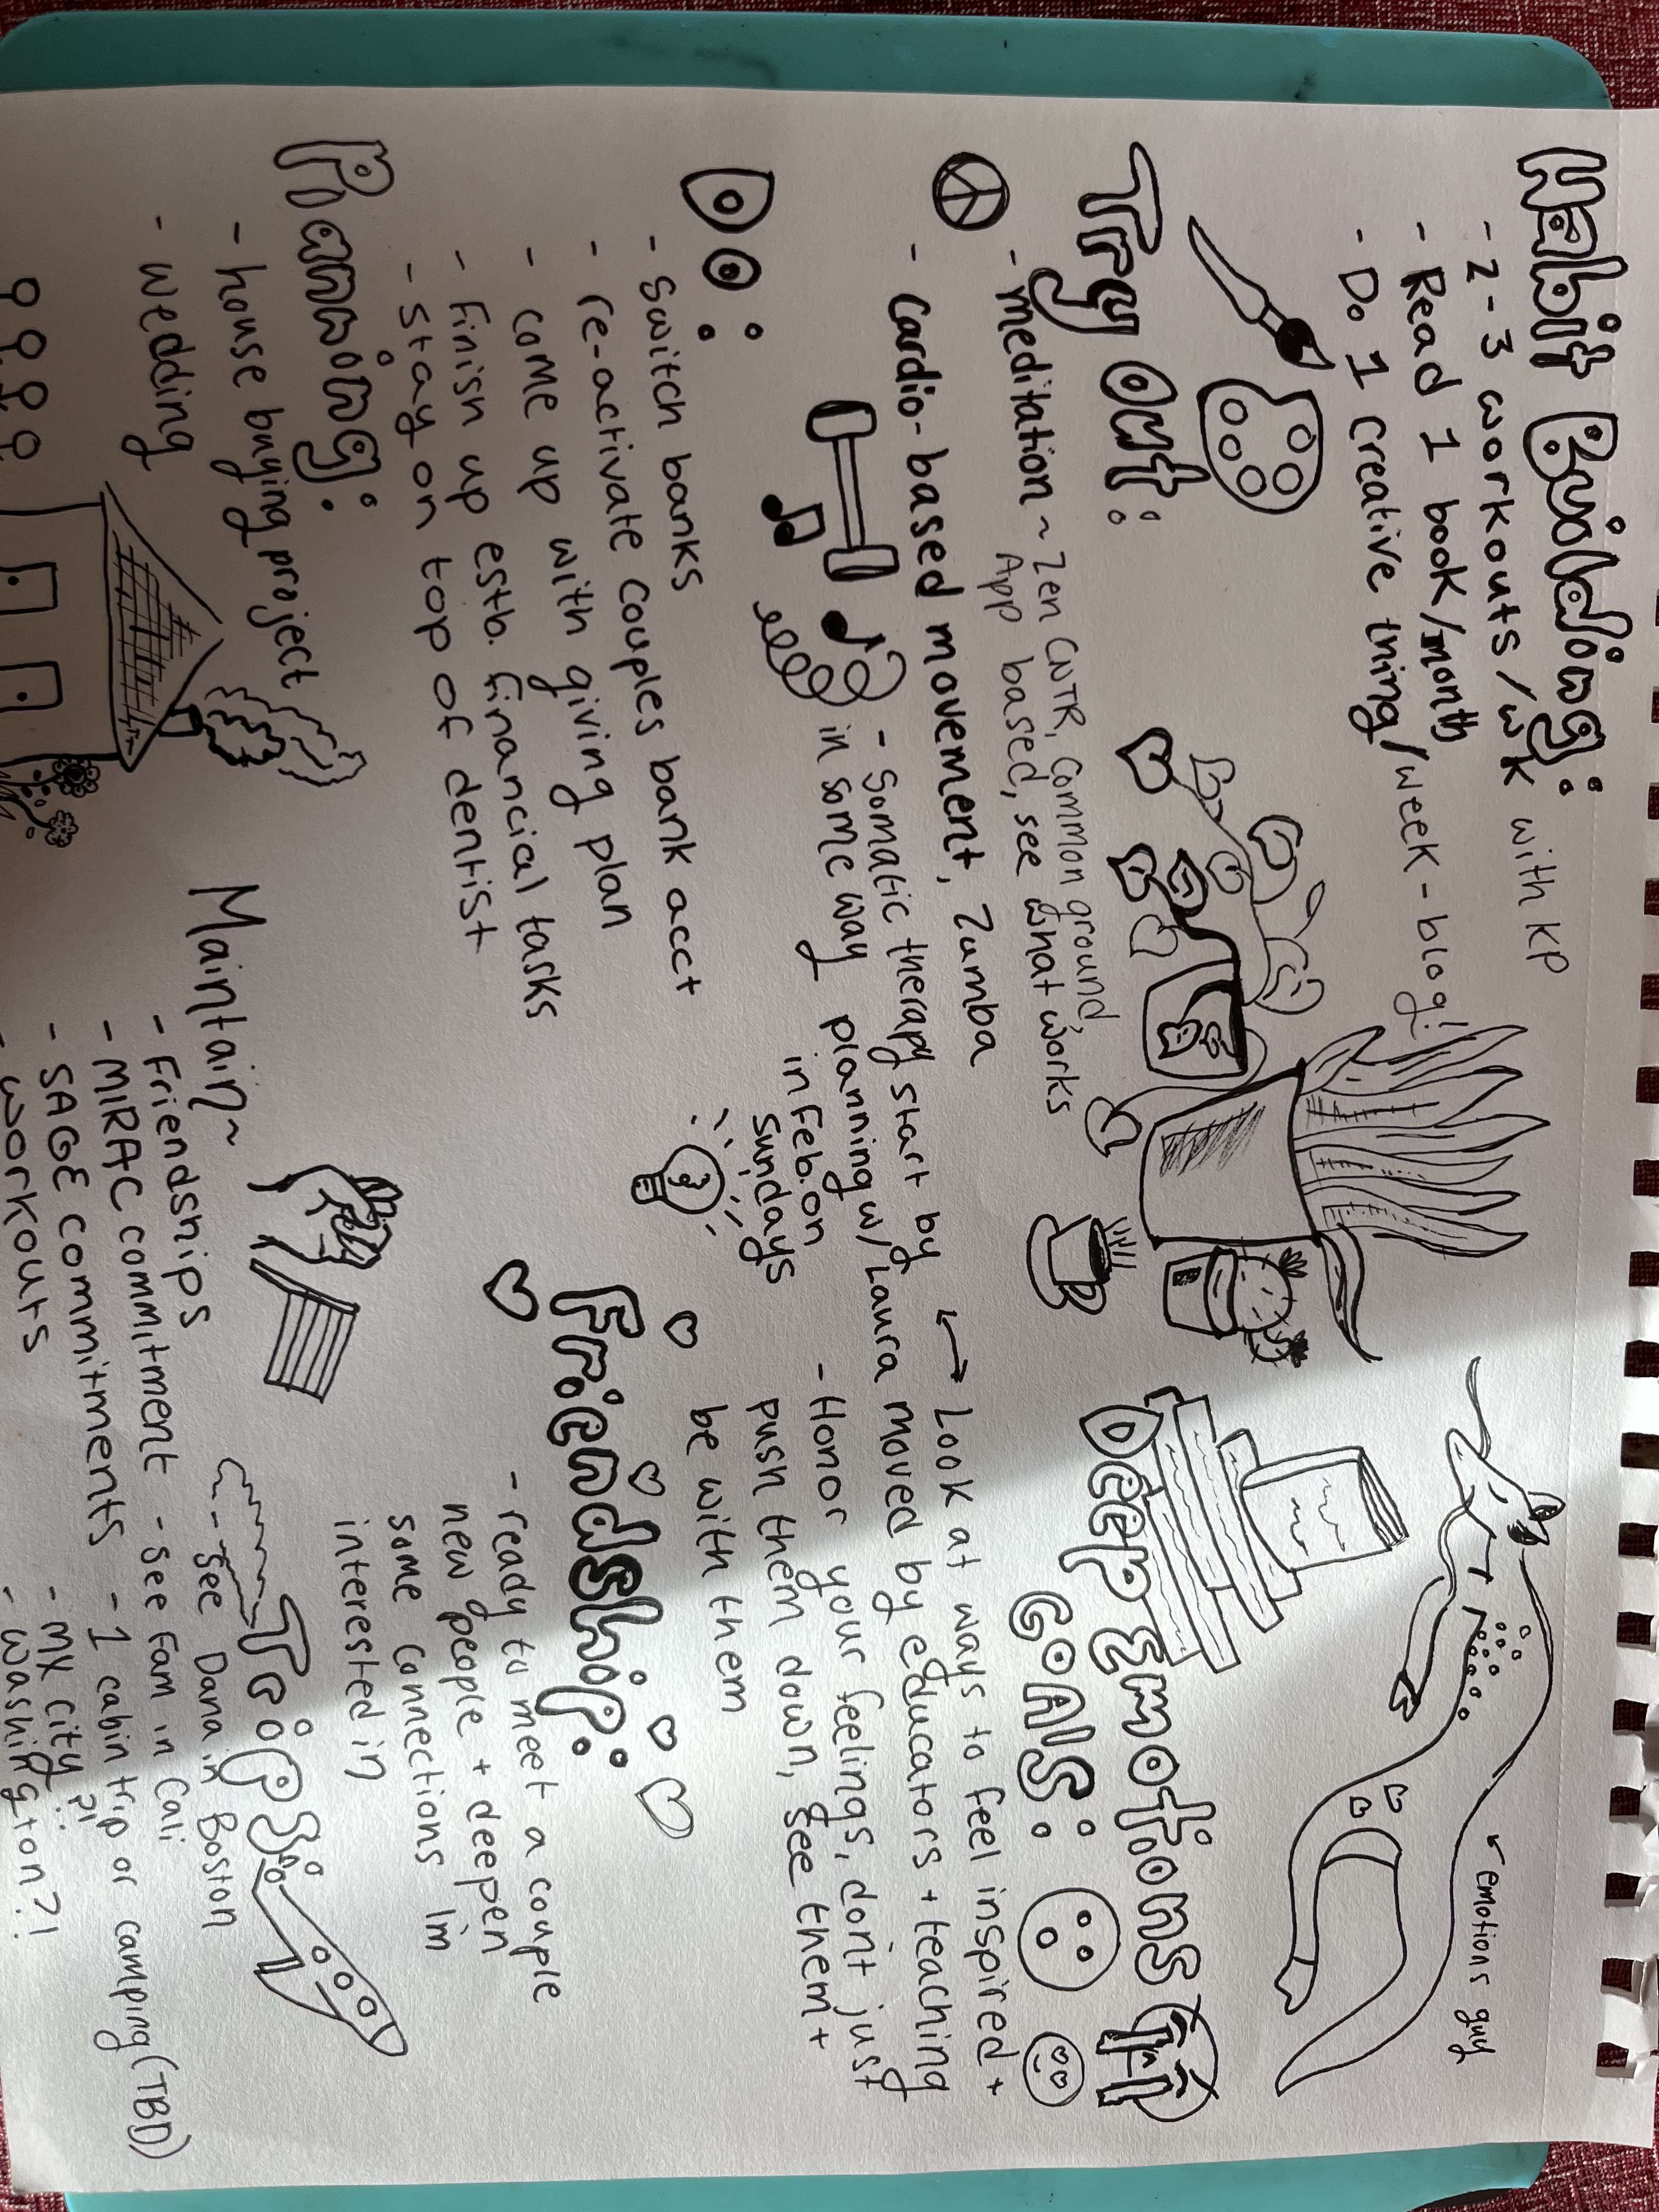 Habit Building:
- 2-3 workouts/wk with KP
- Read 1 book/month
- Do 1 creative thing/week - blog!
Try Out:
- meditation ~ Zen CNTR, common ground,
App based, see what works
- Cardio-based movement, Zumba
- Somatic therapy start by
in some way planning w/ Laura
in Feb. on
Sundays
Do:
- Switch banks
- re-activate couples bank acct
- come up with giving plan
- Finish up estb. financial tasks
- stay on top of dentist
Planning:
- house buying project
- wedding
Maintain~
- Friendships
- MIRAC commitment
- SAGE commitments
- workouts
emotions guy
Deep Emotions
GOALS:
Look at ways to feel inspired +
moved by educators + teaching
- Honor your feelings, don't just
push them down, see them +
be with them
Friendship:
- ready to meet a couple
new people + deepen
some connections Im
interested in
Trips:
- see Dana in Boston
- see Fam in Cali
- 1 cabin trip or camping (TBD)
- MX city?!
- Washington?!